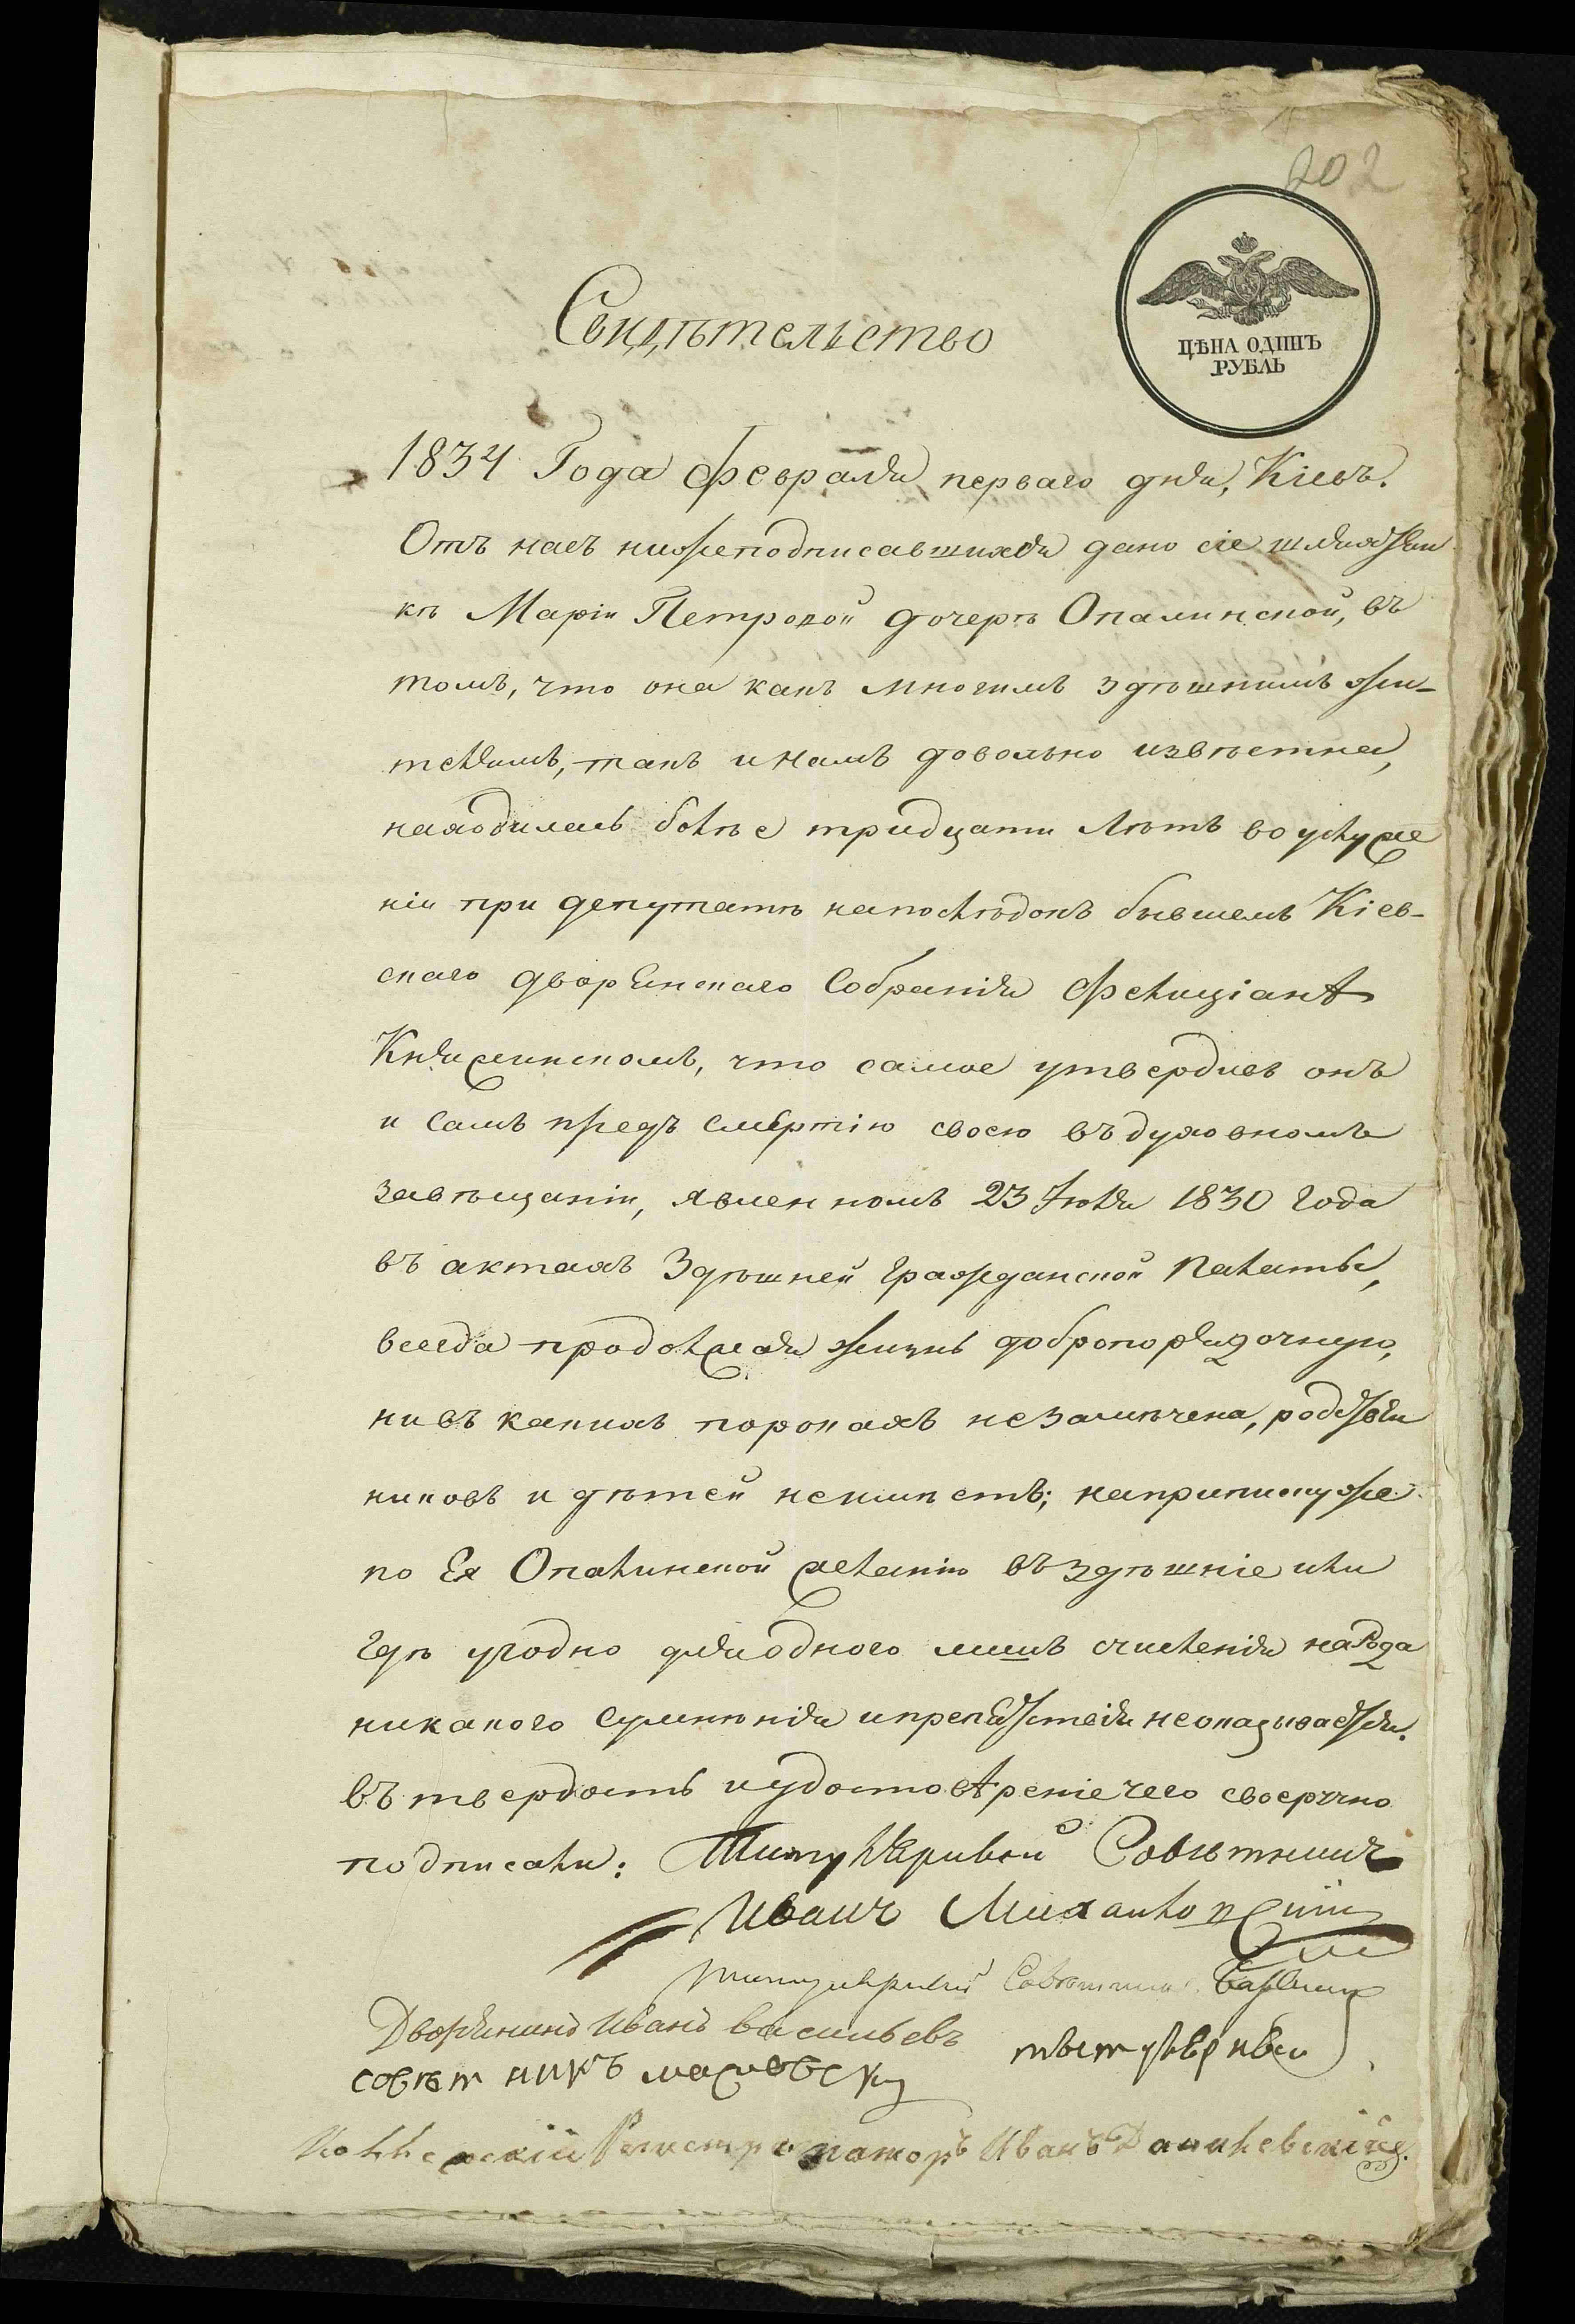 202
ЦѢНА ОДИНЪ
РУБЛЬ
Свидѣтельство
1834 Года Февраля перваго дня, Кіевъ.
Отъ насъ нижеподписавшихся дано сіе шляхтян
кѣ Маріи Петровой дочерѣ Опалинской, въ
томъ, что она какъ многимъ здѣшнимъ жи-
телямъ, такъ и намъ довольно извѣстна,
находилась болѣе тридцати лѣтъ во услуже
ніи при депутатѣ напослѣдокъ бывшемъ Кіев-
скаго дворянскаго Собранія Фелиціанѣ
Княжинскомъ, что самое утвердивъ онъ
и самъ предъ смертію своею въ духовномъ
завѣщаніи, явленномъ 23 Іюля 1830 года
въ актахъ Здѣшней Гражданской Палаты,
всегда продолжая жизнь добропорядочную,
ни въ какихъ порокахъ незамѣчена, родстве
никовъ и дѣтей неимѣетъ; наприпискуже
по Ея Опалинской желанію въ здѣшніе или
гдѣ угодно дляодного лишъ счисленія народа
никакого сумнѣнія ипрепятствія неоказывается.
въ твердость иудостовѣреніе чего своеручно
подписали: Титулярный Совѣтникъ
Иванъ
титулярный Совѣтникъ
Дворянинъ Иванъ Васильевъ
титулярный
совѣтникъ
Коллежскій Регистраторъ Иванъ Данилевскій